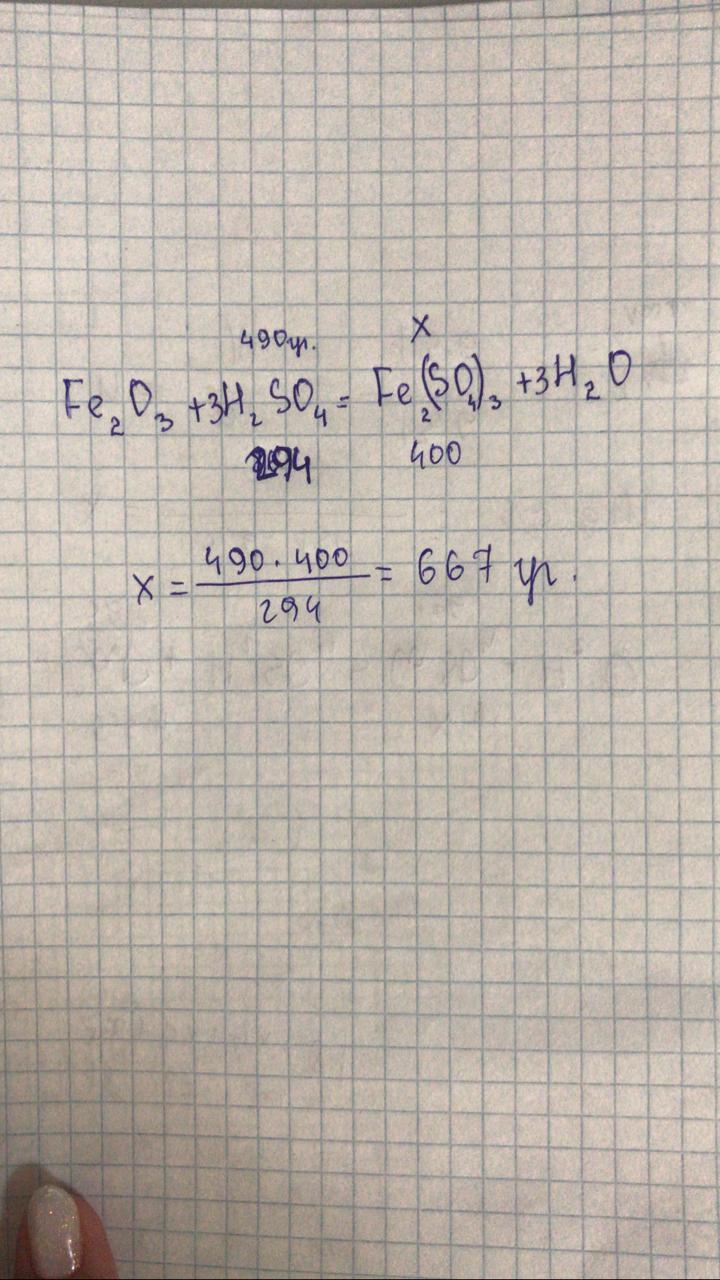 490гр. X
Fe₂O₃ + 3H₂SO₄ = Fe₂(SO₄)₃ + 3H₂O
294 400
x = 490 · 400 / 294 = 667 гр.